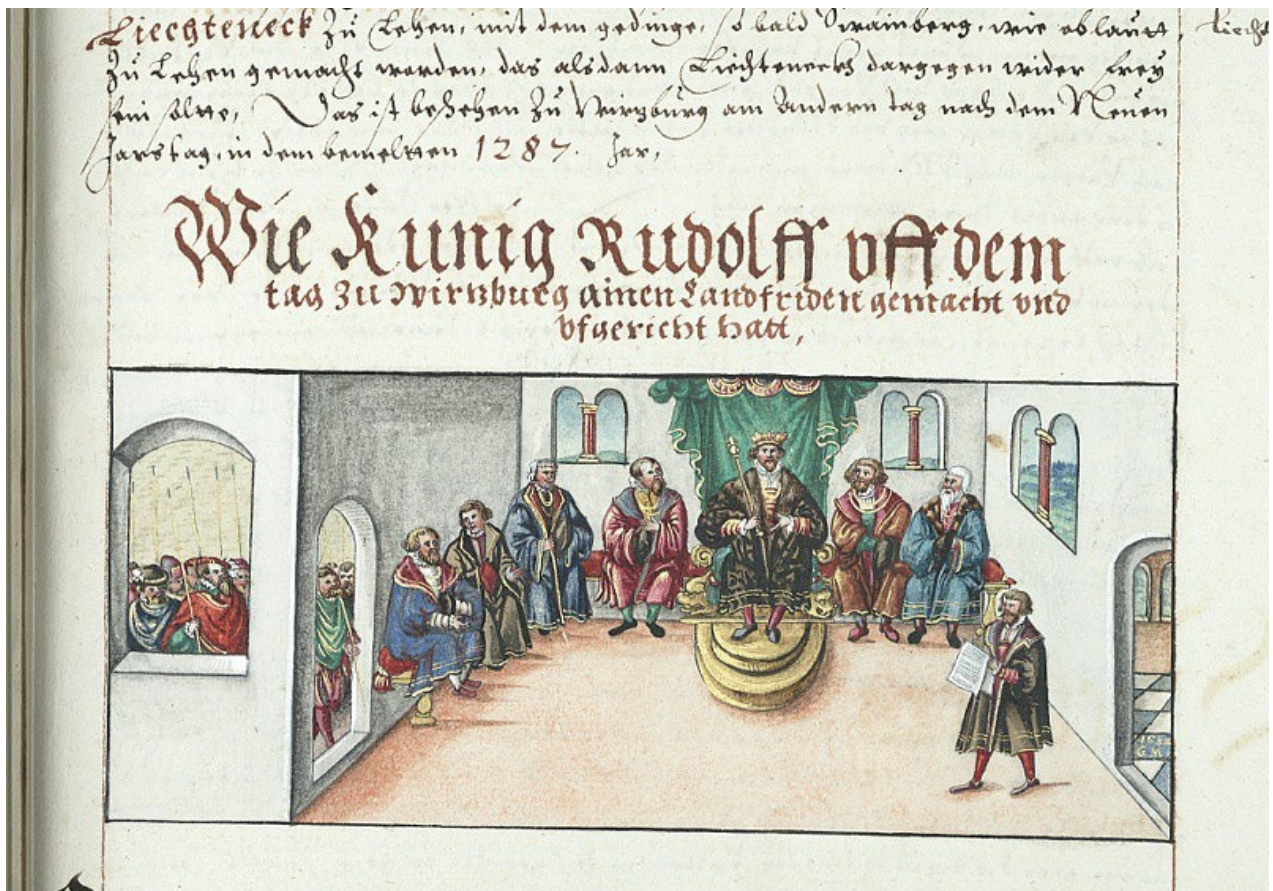 Liechteneck zu Lehen, mit dem gedinge, so bald Swainberg, wie oblautt,
Liecht
zu Lehen gemacht worden, das alsdann Liechteneckh dargegen wider frey
sein solte, Das ist beschehen zu Wirtzburg am andern tag nach dem Neuen
Jarstag, in dem bemeltten 1287. Jar,
Wie Kunig Rudolff vff dem
tag zu Wirtzburg ainen Landfriden gemacht vnd
vfgericht hatt,
G M